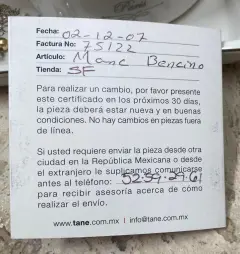 Fecha: 02-12-07
Factura No: 75122
Artículo: Manc Bencino
Tienda: SF
Para realizar un cambio, por favor presente
este certificado en los próximos 30 días,
la pieza deberá estar nueva y en buenas
condiciones. No hay cambios en piezas fuera
de línea.
Si usted requiere enviar la pieza desde otra
ciudad en la República Mexicana o desde
el extranjero le suplicamos comunicarse
antes al teléfono: 52-59-29-61
para recibir asesoría acerca de cómo
realizar el envío.
www.tane.com.mx | info@tane.com.mx